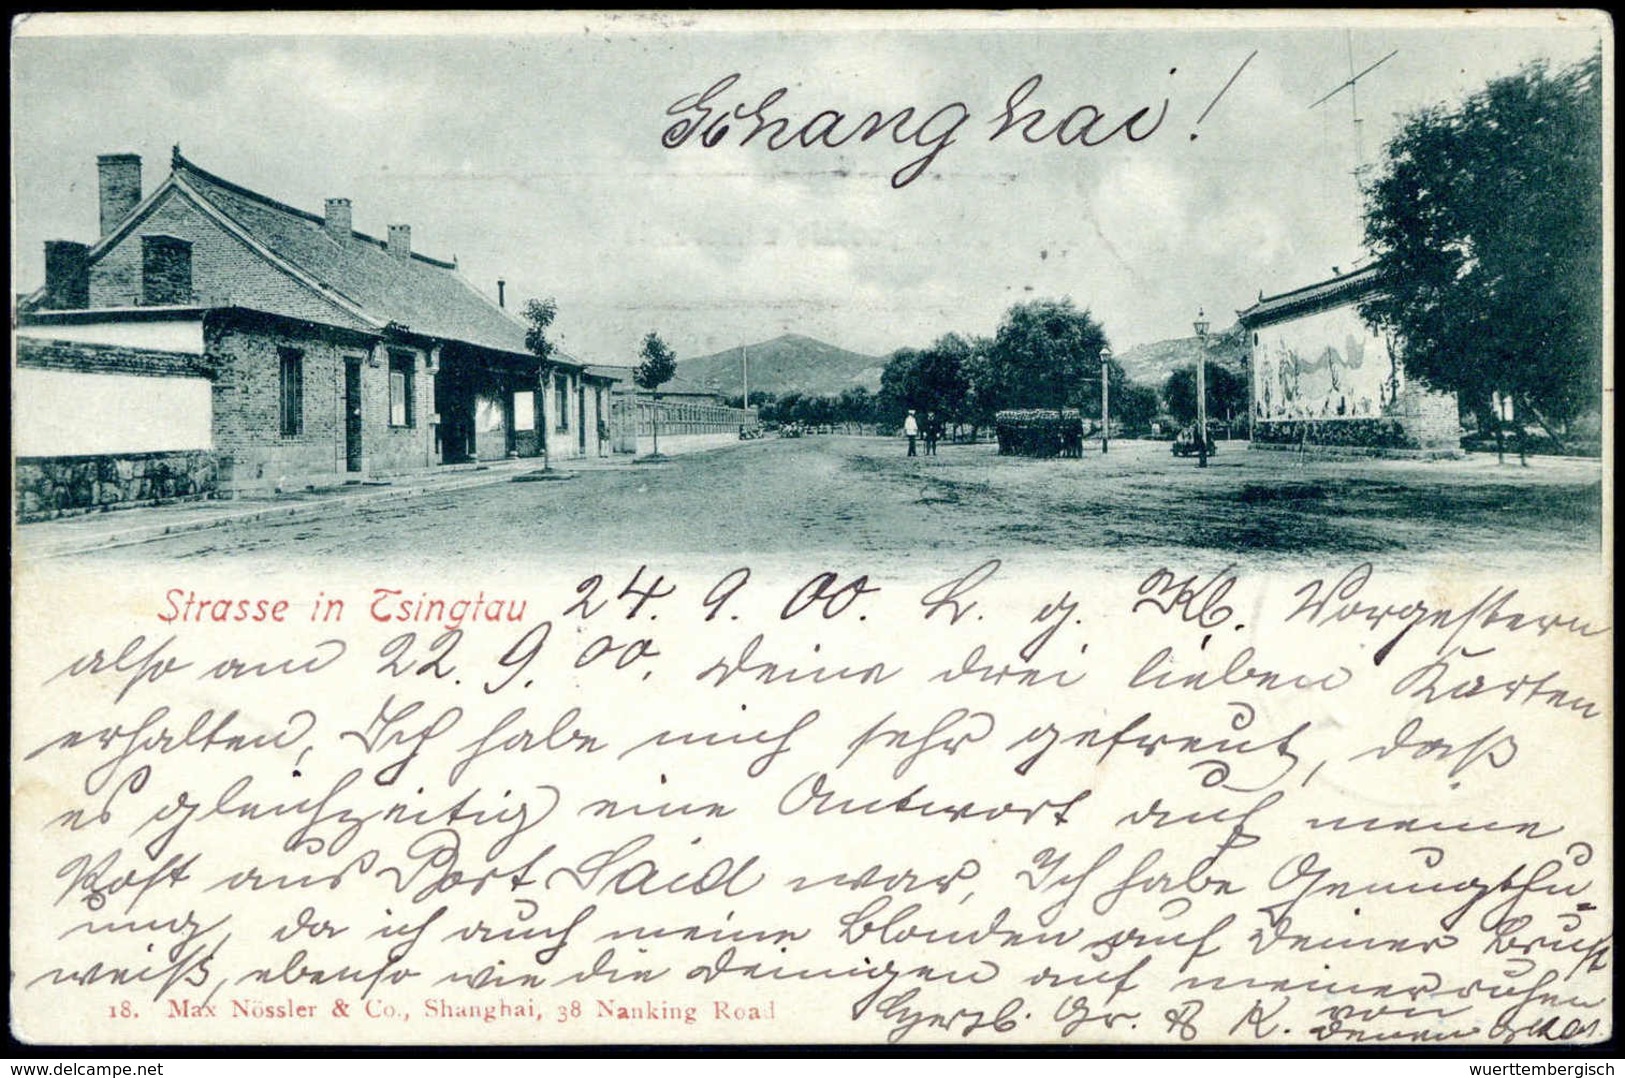 Schanghai!
Strasse in Tsingtau 24. 9. 00. L. g. Kl. Vorgestern
also am 22. 9. 00. Deine drei lieben Karten
erhalten, Ich habe mich sehr gefreut, daß
es gleichzeitig eine Antwort auf meine
Post aus Port Said war, Ich habe Genugthu-
ung, da ich auch meine Blonden auf Deiner Brust
weiß, ebenso wie die Deinigen auf meiner ruhen
18. Max Nössler & Co., Shanghai, 38 Nanking Road
Herzl. Gr. & K. von
Deinem
www.wuerttembergisch